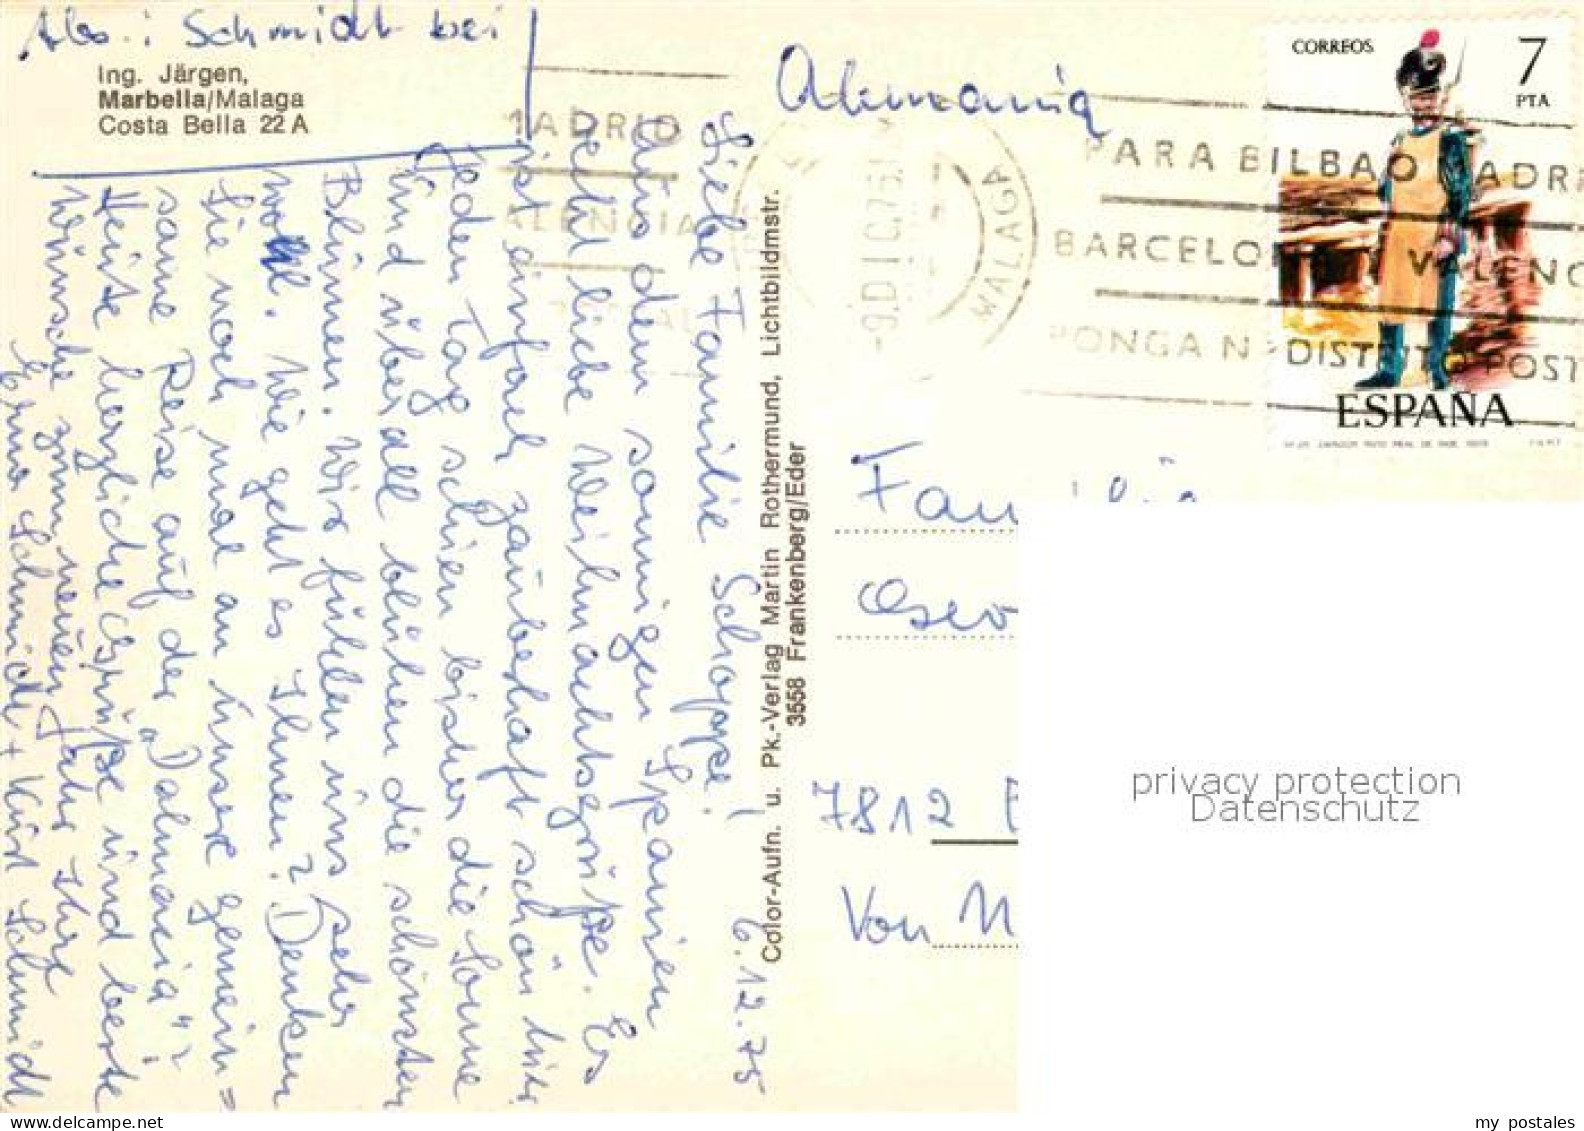 Abs.: Schmidt bei
Ing. Järgen,
Marbella/Malaga
Costa Bella 22 A
6.12.75
Liebe Familie Schoppe!
Aus dem sonnigen Spanien
recht liebe Weihnachtsgrüße. Es
ist einfach zauberhaft schön hier
Jeden Tag schien bisher die Sonne
und überall blühen die schönsten
Blumen. Wir fühlen uns sehr
wohl. Wie geht es Ihnen? Denken
Sie noch mal an unsere gemein=
same Reise auf der „Dalmacia"?
Heute herzliche Grüße und beste
Wünsche zum neuen Jahr Ihre
Erna Schmidt + Kurt Schmidt
Color-Aufn. u. Pk.-Verlag Martin Rothermund, Lichtbildmstr.
3558 Frankenberg/Eder
Alemania
CORREOS
7
PTA
ESPAÑA
MADRID
VALENCIA
MALAGA
-9.DIC.75
PARA BILBAO MADRI
BARCELO VALENC
PONGA N DISTRITO POST
Fam
Geo
7812
Von
privacy protection
Datenschutz
www.mypostales.com
my postales